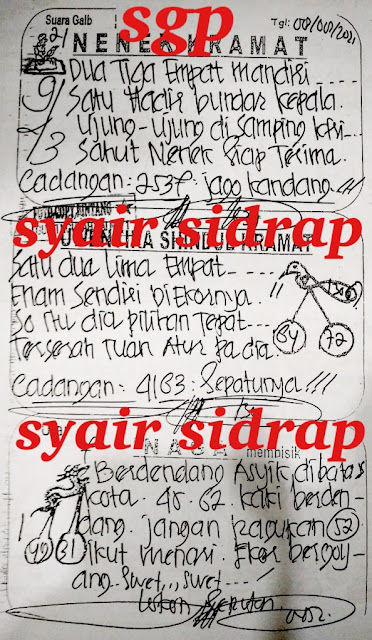 sgp
Suara Gaib
Tgl: 00/00/2021
NENEK KRAMAT
21
Dua Tiga Empat mandiri
9/ Satu Hadir bundar kepala.
2 Ujung-ujung di samping kiri
/3 Sahut Nenek Siap Terima.
Cadangan: 2537. jago kandang !!!
syair sidrap
KRAMAT
Satu dua Lima Empat
Enam Sendiri di Ekornya. !!
So itu dia pilihan Tepat
Terserah Tuan Atur pa dia.
84 72
Cadangan: 4163: Sepatunya !!!
syair sidrap
NAGA membisik
Berdendang Asyik dibatas
kota. 40. 62. kaki berden-
dang. jangan ragukan 52
ikut menari. Ekor bergoy-
ang. Suwet,,, suwet
1 49 31